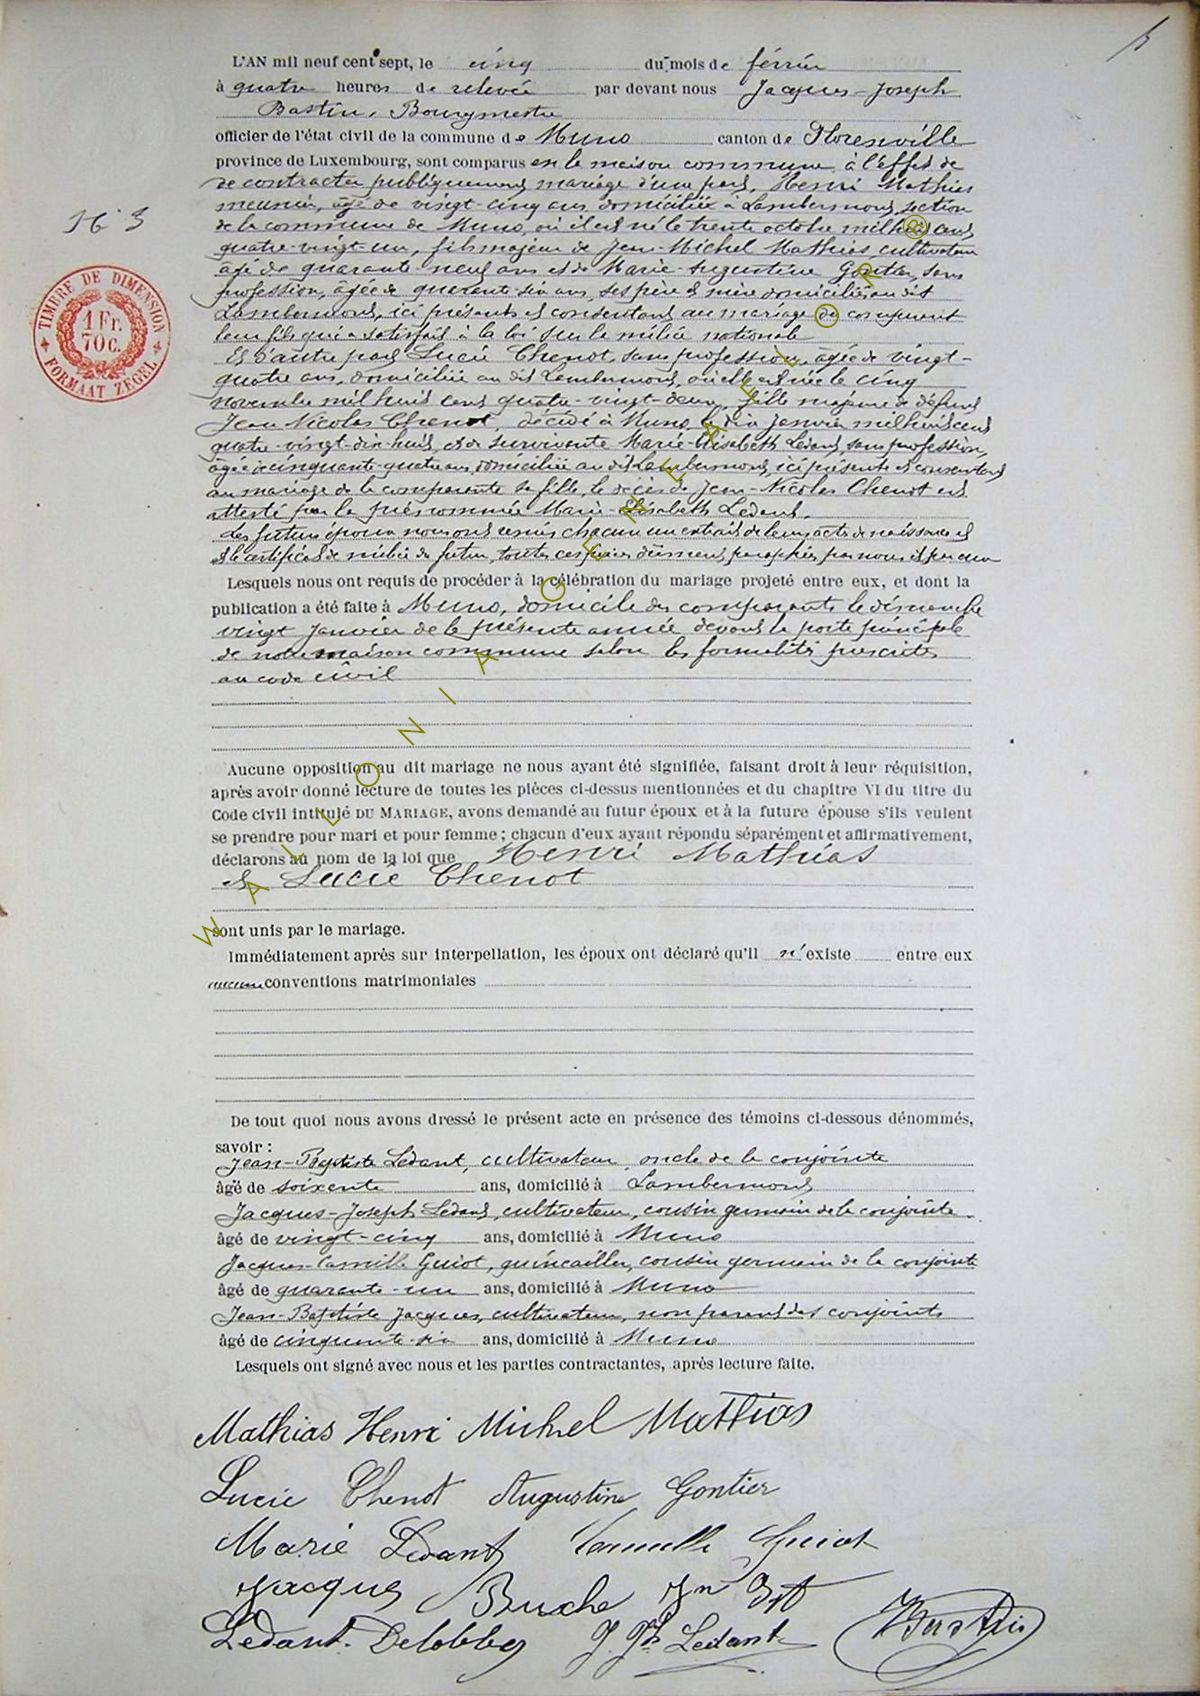 L'AN mil neuf cent sept, le cinq du mois de février
à quatre heures de relevée par devant nous Jacques-Joseph
Bastin, Bourgmestre
officier de l'état civil de la commune de Muno canton de Florenville
province de Luxembourg, sont comparus en la maison commune à l'effet de
de contracter publiquement mariage d'une part, Henri Mathias
meunier, âgé de vingt-cinq ans domicilié à Lambermont, section
de la commune de Muno, où il est né le trente octobre mil huit cent
quatre-vingt un, fils majeur de Jean-Michel Mathias, cultivateur
âgé de quarante-neuf ans et de Marie-Augustine Gontier, sans
profession, âgée de quarante-six ans, ses père et mère domiciliés au dit
Lambermont, ici présents et consentant au mariage du comparant
leur fils qui a satisfait à la loi sur la milice nationale
Et d'autre part Lucie Chenot, sans profession, âgée de vingt-
quatre ans, domiciliée au dit Lambermont, où elle est née le cinq
novembre mil huit cent quatre-vingt-deux, fille majeure de défunt
Jean Nicolas Chenot, décédé à Muno, le dix janvier mil huit cent
quatre-vingt-dix-huit, et de survivante Marie-Elisabeth Ledant, sans profession,
âgée de cinquante-quatre ans, domiciliée au dit Lambermont, ici présente et consentant
au mariage de la comparante sa fille, le décès de Jean-Nicolas Chenot est
attesté par la prénommée Marie-Elisabeth Ledant.
Les futurs époux nous ont remis chacun un extrait de leurs actes de naissance et
et le certificat de milice du futur, toutes ces pièces dûment paraphées par nous et par eux
Lesquels nous ont requis de procéder à la célébration du mariage projeté entre eux, et dont la
publication a été faite à Muno, domicile des comparants le dimanche
vingt janvier de la présente année devant la porte principale
de notre maison commune selon les formalités prescrites
au code civil
Aucune opposition au dit mariage ne nous ayant été signifiée, faisant droit à leur réquisition,
après avoir donné lecture de toutes les pièces ci-dessus mentionnées et du chapitre VI du titre du
Code civil intitulé DU MARIAGE, avons demandé au futur époux et à la future épouse s'ils veulent
se prendre pour mari et pour femme ; chacun d'eux ayant répondu séparément et affirmativement,
déclarons au nom de la loi que Henri Mathias
et Lucie Chenot
sont unis par le mariage.
Immédiatement après sur interpellation, les époux ont déclaré qu'il n'existe entre eux
aucune conventions matrimoniales
De tout quoi nous avons dressé le présent acte en présence des témoins ci-dessous dénommés,
savoir :
Jean-Baptiste Ledant, cultivateur, oncle de la conjointe
âgé de soixante ans, domicilié à Lambermont
Jacques-Joseph Ledant, cultivateur, cousin germain de la conjointe
âgé de vingt-cinq ans, domicilié à Muno
Jacques-Camille Guiot, quincailler, cousin germain de la conjointe
âgé de quarante-un ans, domicilié à Muno
Jean-Baptiste Jacques, cultivateur, non parent des conjoints
âgé de cinquante-six ans, domicilié à Muno
Lesquels ont signé avec nous et les parties contractantes, après lecture faite.
Mathias Henri Michel Mathias
Lucie Chenot Augustine Gontier
Marie Ledant Camille Guiot
Jacques Jn Bte
Ledant-Delobbe J. Ph Ledant Bastin
N° 3
TIMBRE DE DIMENSION
1 Fr.
70 C.
FORMAAT ZEGEL
WALLONIA GENEALOGY